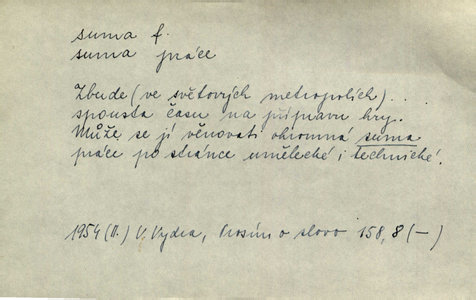 suma f.
suma práce
Zbude (ve světových metropolích) . .
spousta času na přípravu hry.
Může se jí věnovati ohromná suma
práce po stránce umělecké i technické.
1954 (II.) V. Vydra, Prosím o slovo 158, 8 (—)